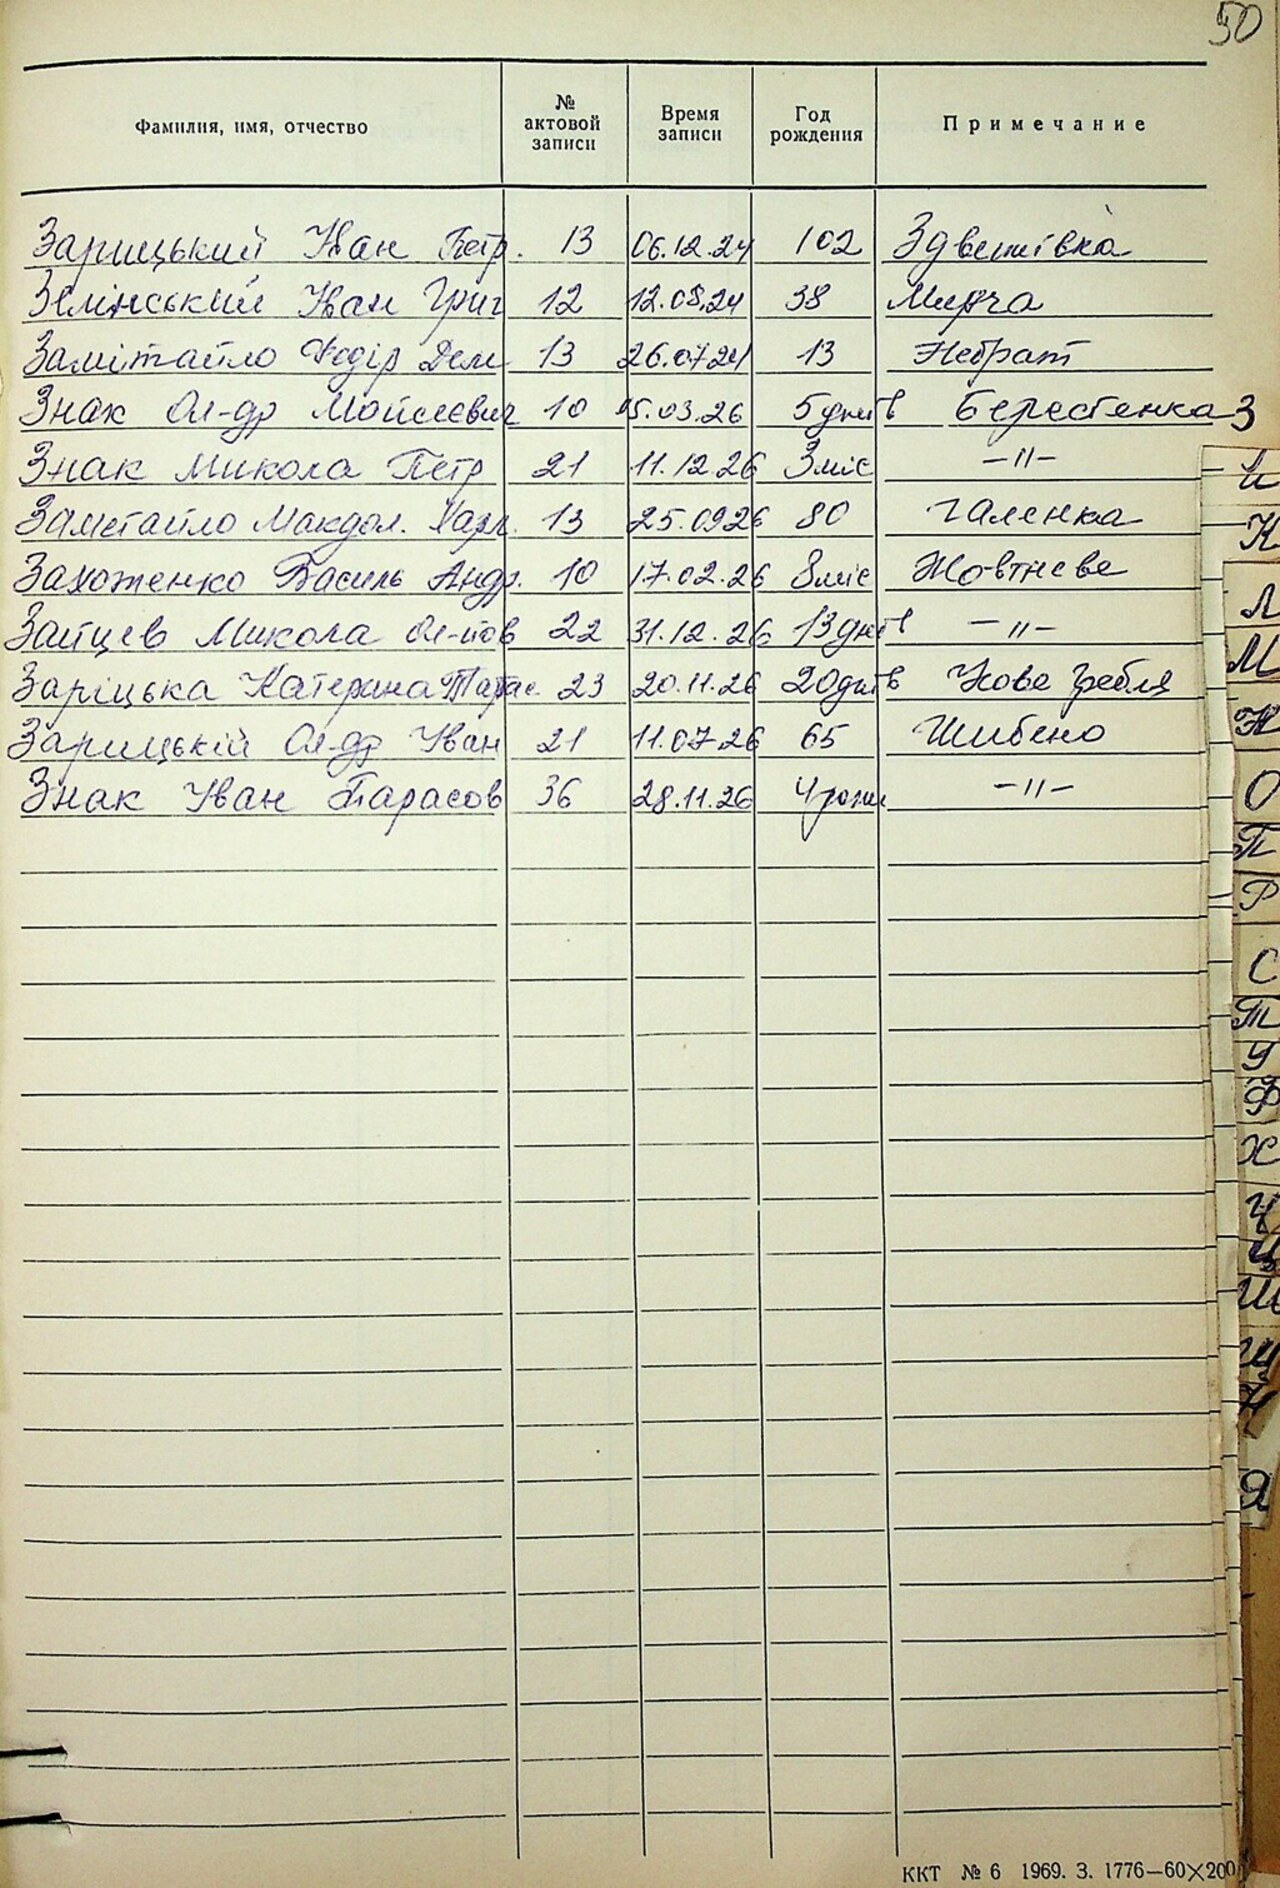 50
Фамилия, имя, отчество № актовой записи Время записи Год рождения Примечание
Зарицький Іван Петр. 13 06.12.24 102 Здвижівка
Зелінський Іван Григ 12 12.08.24 38 Мирча
Замітайло Федір Дем 13 26.07.24 13 Небрат
Знак Ол-др Мойсеєвич 10 05.03.26 5 днів Берестянка
З
Знак Микола Петр 21 11.12.26 3 міс —//—
Заметайло Макдал. Харл. 13 25.09.26 80 Галенка
Захоженко Василь Андр. 10 17.02.26 8 міс Жовтневе
Зайцев Микола Ол-йов 22 31.12.26 13 днів —//—
Заріцька Катерина Тарас. 23 20.11.26 20 днів Нове Гребля
Зарицькій Ол-др Іван 21 11.07.26 65 Шибено
Знак Іван Тарасов 36 28.11.26 4 роки —//—
И
К
Л
М
Н
О
П
Р
С
Т
У
Ф
Х
Ч
Ц
Ш
Щ
Я
ККТ № 6 1969. З. 1776—60×200